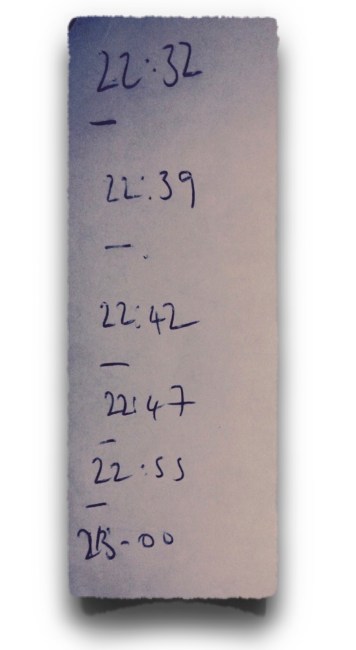 22:32
—
22:39
—.
22:42
—
22:47
—
22:55
—
23-00